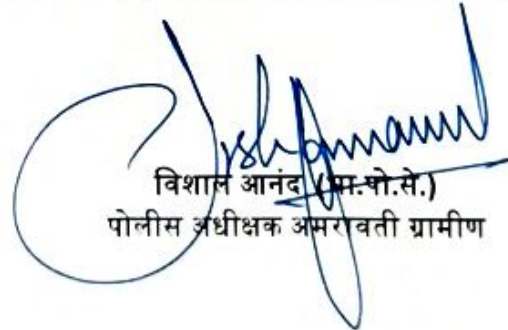 विशाल आनंद (भा.पो.से.)
पोलीस अधीक्षक अमरावती ग्रामीण